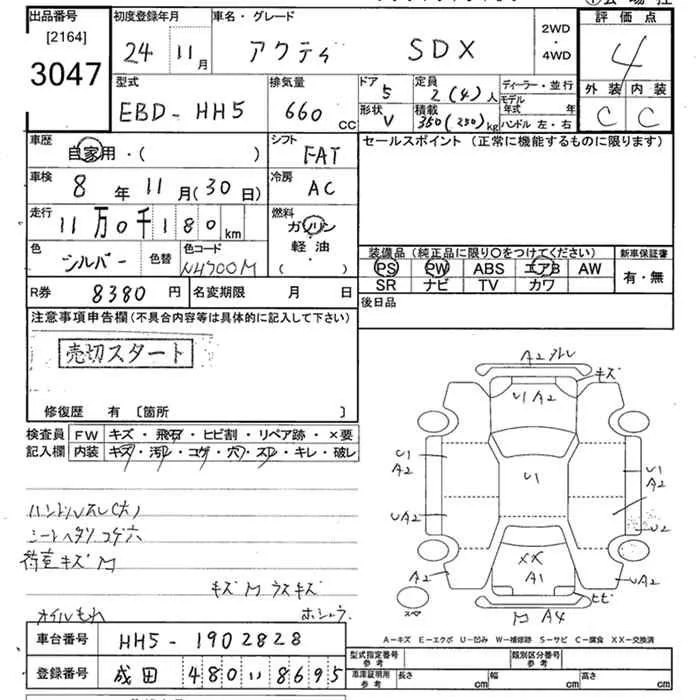 出品番号 初度登録年月 車名・グレード 2WD・4WD 評価点
[2164]
3047 24 11月 アクティ SDX 4
型式 排気量 ドア 5 定員 2(4)人 ディーラー・並行 外装 内装
EBD-HH5 660CC 形状 V 積載 350(250)kg モデル年式 年 C C
ハンドル 左・右
車歴 自家用・( ) シフト FAT セールスポイント(正常に機能するものに限ります)
車検 8年11月(30日) 冷房 AC
走行 11万0千180km 燃料 ガソリン・軽油・( )
色 シルバー 色替 色コード 装備品(純正品に限り○をつけてください) 新車保証書
PS PW ABS エアB AW 有・無
SR ナビ TV カワ
R券 8380円 名変期限 月 日 後日品
注意事項申告欄(不具合内容等は具体的に記入して下さい)
売切スタート
修復歴 有 [箇所 ]
検査員 FW キズ・飛石・ヒビ割・リペア跡・×要
記入欄 内装 キズ・汚レ・コゲ・穴・スレ・キレ・破レ
A2
キズ
U1 A2
U1 U1 U1
A2 A2
UA2 U2
XX
A1
A2 UA2
ヒビ
A4
ハンドルスレ(大)
シートヘタリコゲ穴
荷室キズM
キズM ウスキズ
オイルもれ
A-キズ E-エクボ U-凹み W-補修跡 S-サビ C-腐食 XX-交換済
車台番号 HH5-1902828
型式指定番号 参考 類別区分番号 参考
登録番号 成田 480 い 8695
車庫証明用 参考 長さ cm 幅 cm 高さ cm